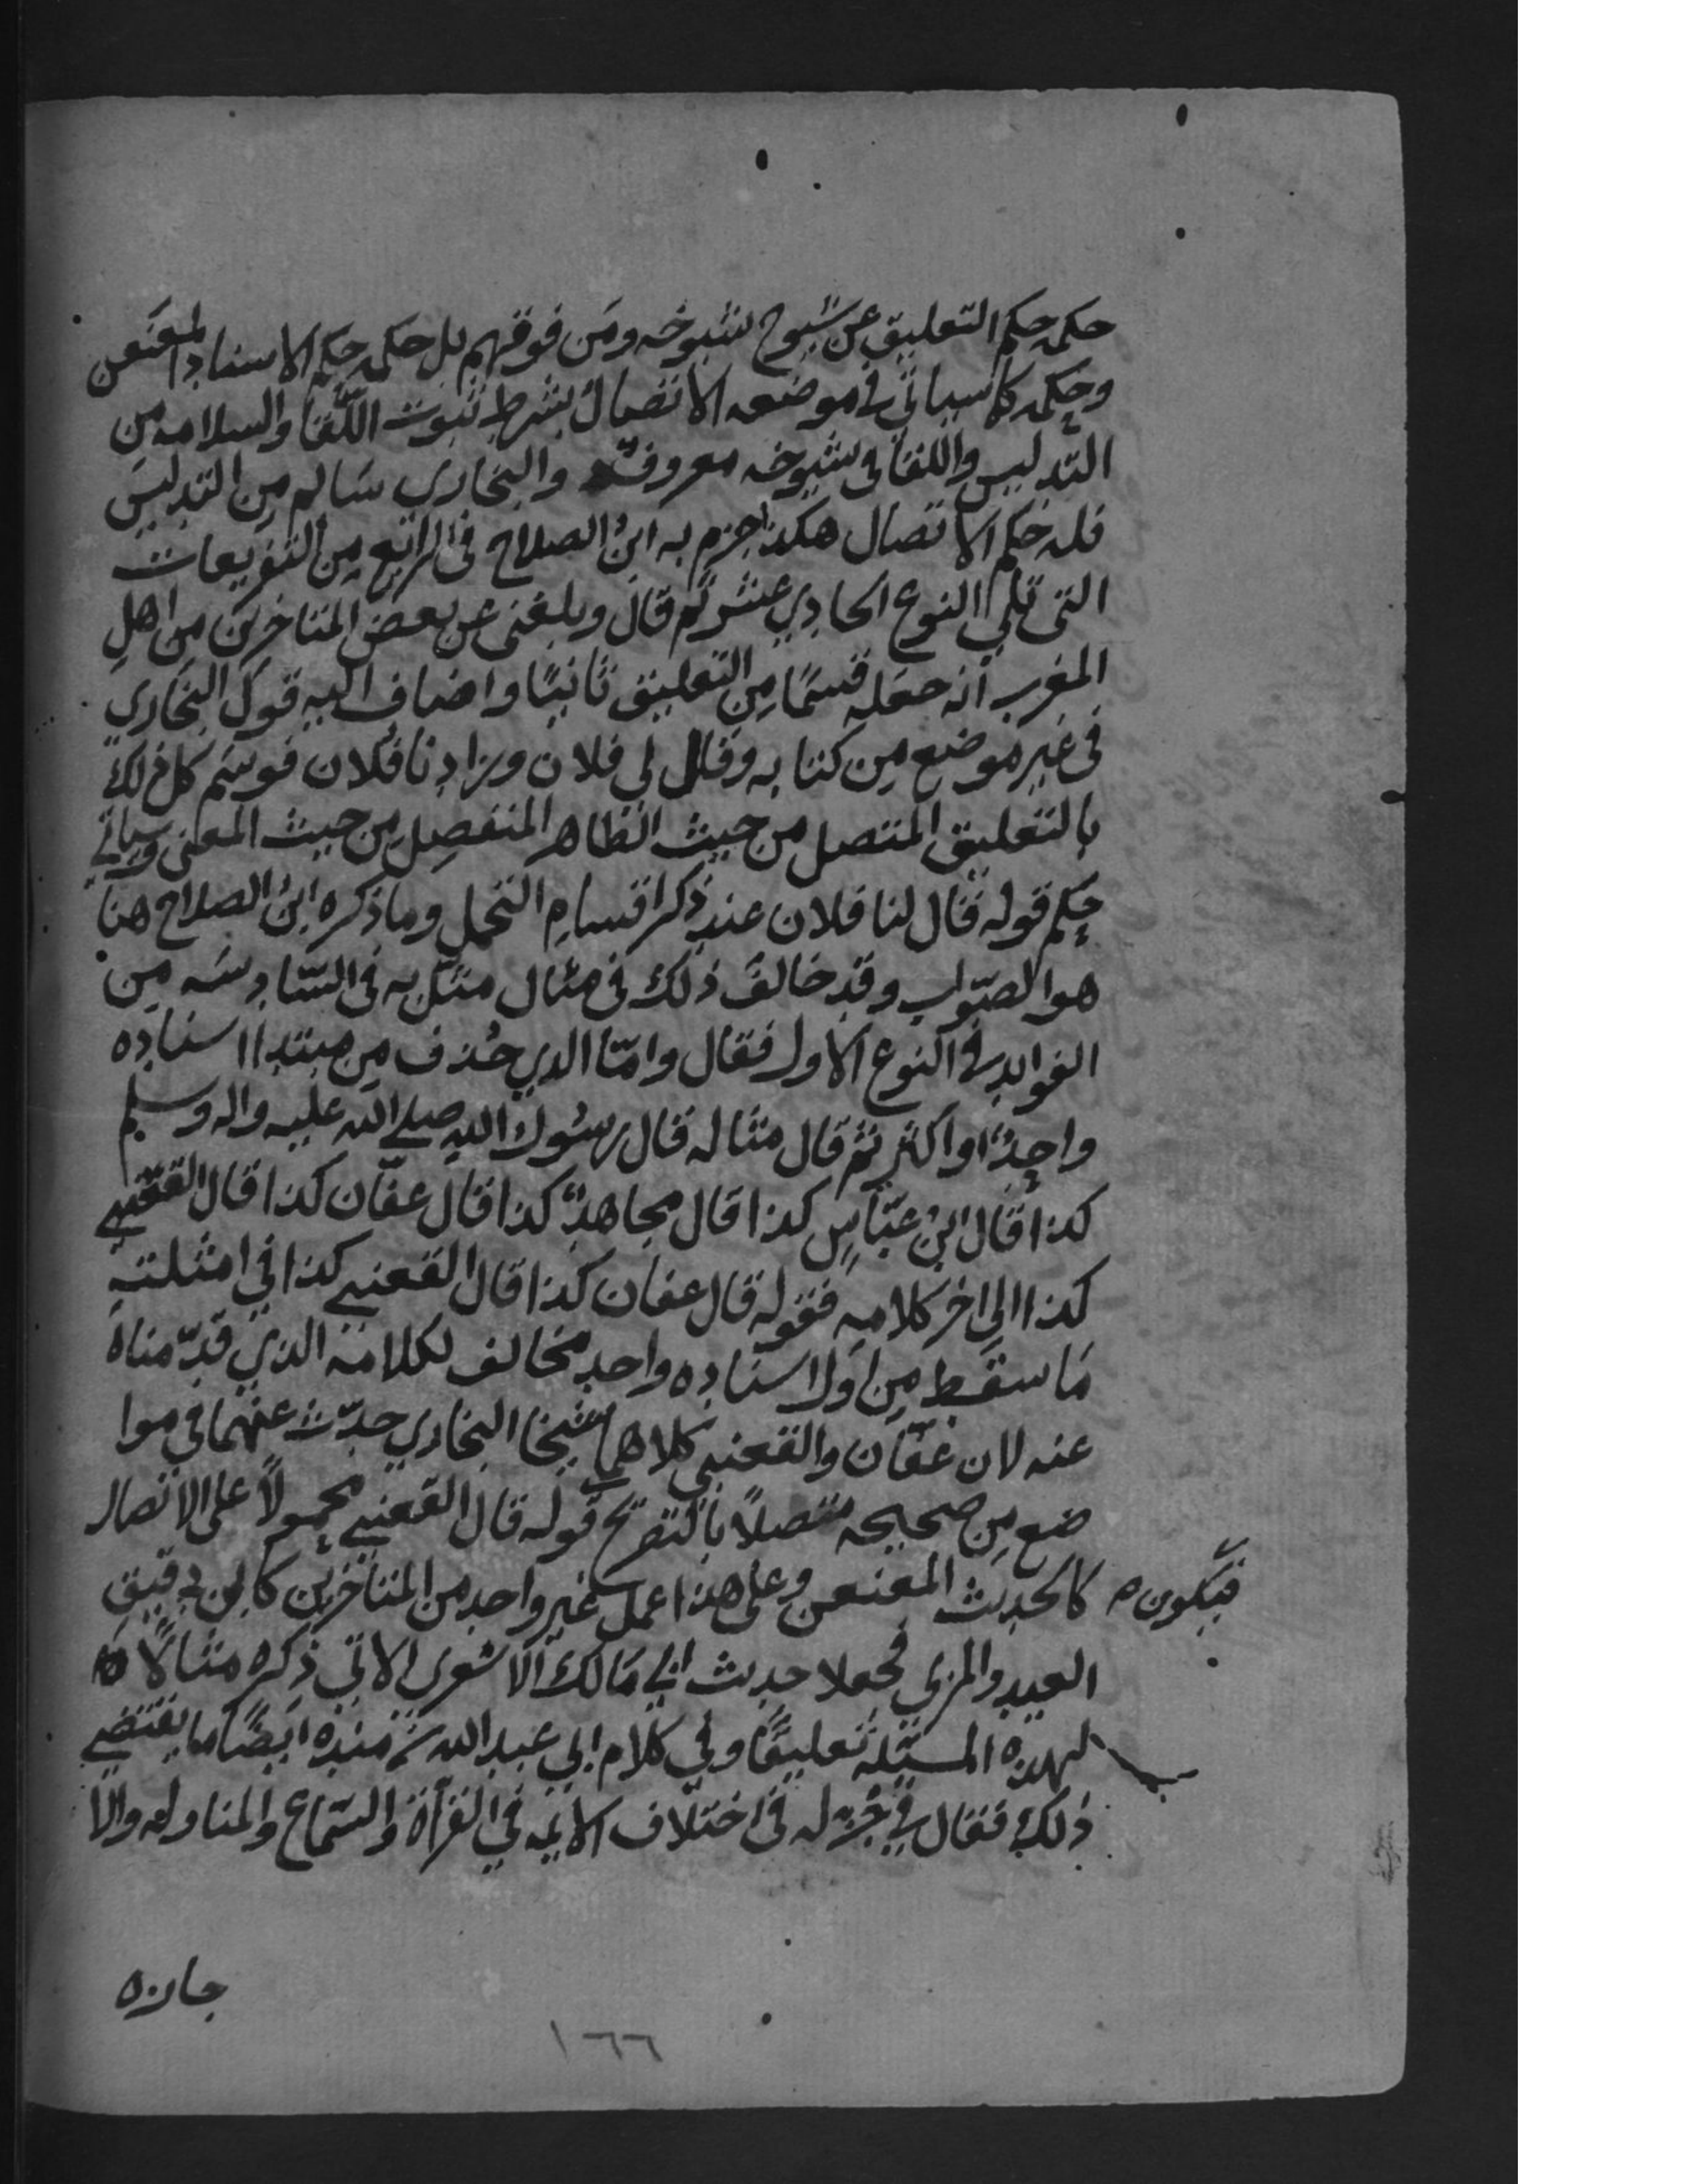 حكمه حكم التعليق عن شيوخ شيوخه ومن فوقهم بل حكمه حكم الاسناد المعنعن
وحكمه كما سياتي في موضعه الاتصال بشرط ثبوت اللقا والسلامه من
التدليس واللقا في شيوخه معروف والبخاري سالم من التدليس
فله حكم الاتصال هكذا جزم به ابن الصلاح في الرابع من التفريعات
التي تلي النوع الحادي عشر ثم قال وبلغني عن بعض المتاخرين من اهل
المغرب انه جعله قسمًا من التعليق ثانيًا واضاف اليه قول البخاري
في غير موضع من كتابه وقال لي فلان وزادنا فلان فوسم كل ذلك
بالتعليق المتصل من حيث الظاهر المنفصل من حيث المعنى وسياتي
حكم قوله قال لنا فلان عند ذكر اقسام التحمل وما ذكره ابن الصلاح هنا
هو الصواب وقد خالف ذلك في مثال مثل به في السادسه من
الفوايد في النوع الاول فقال وامّا الذي حُذف من مبتدا اسناده
واحدٌ او اكثر ثم قال مثاله قال رسول الله صلى الله عليه واله وسلم
كذا قال ابن عبّاسٍ كذا قال مجاهدٌ كذا قال عفّان كذا قال القعنبي
كذا الى اخر كلامه فقوله قال عفان كذا قال القعنبي كذا في امثلته
مَا سقط من اول اسناده واحد مخالف لكلامه الذي قدّمناه
عنه لان عفّان والقعنبي كلاهما شيخا البخاري حدّث عنهما في موا
ضع من صحيحه متصلاً بالتصريح قوله قال القعنبي محمولاً على الاتصال
فيكون ه كالحديث المعنعن وعلى هذا عمل غير واحد من المتاخرين كابن دقيق
العيد والمزي فجعلا حديث ابي مَالك الاشعري الاتي ذكره مثالاً
لهذه المسئلة تعليقًا وفي كلام ابي عبد الله بن منده ايضًا ما يقتضي
ذلك فقال في جُزءٍ له في اختلاف الايمه في القرأة والسّماع والمناوله والا
جازه
١٦٦